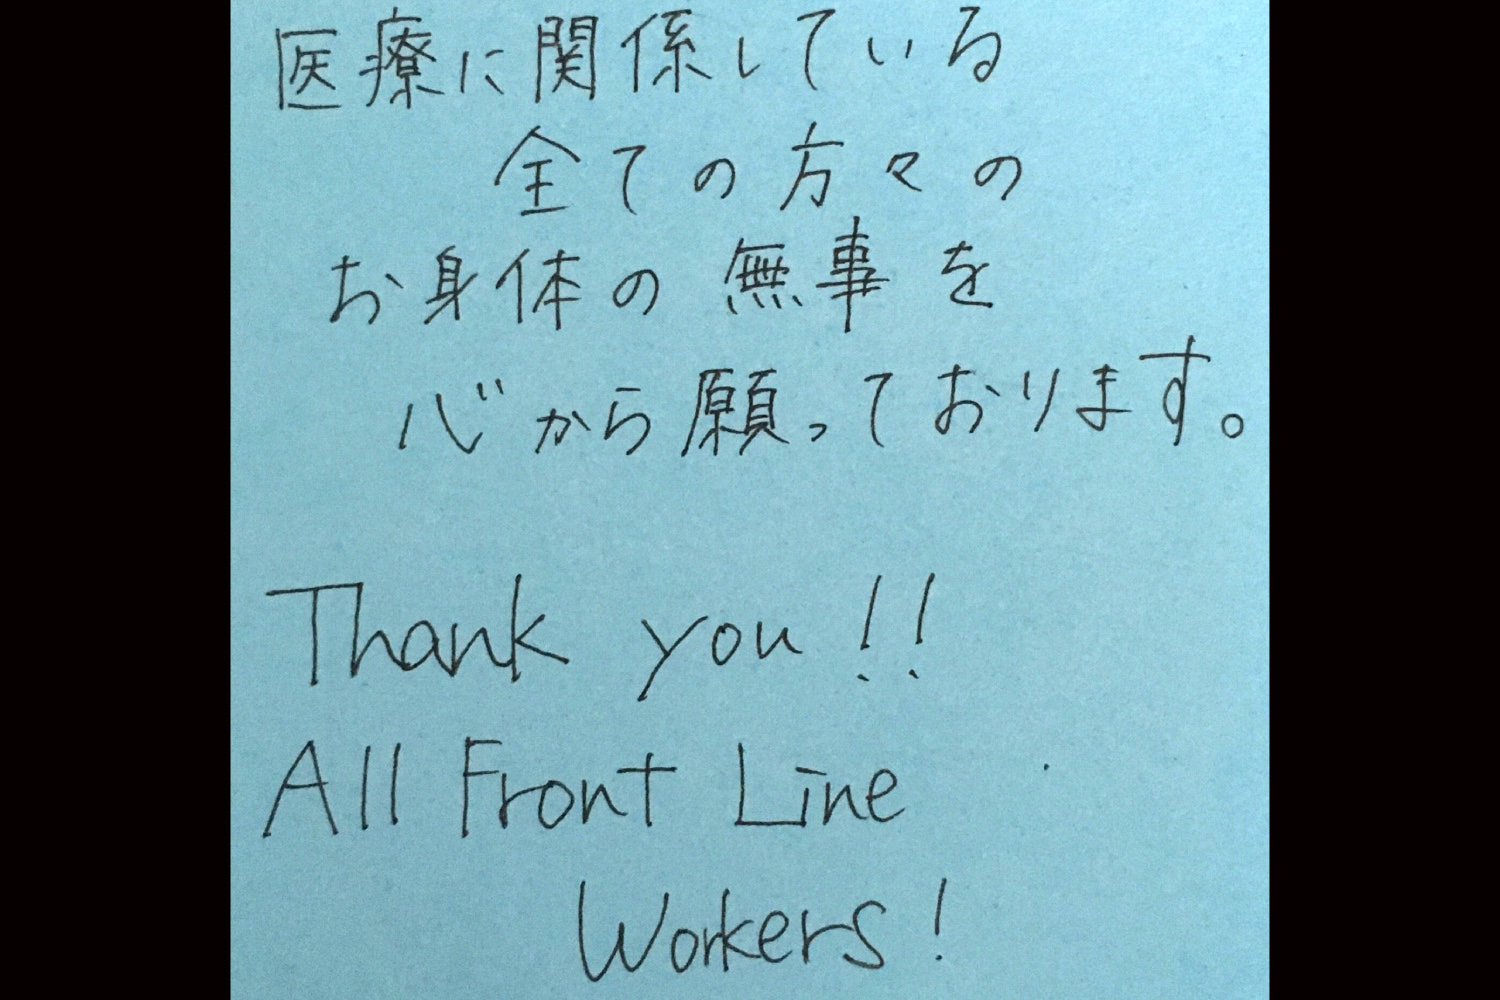 医療に関係している
全ての方々の
お身体の無事を
心から願っております。
Thank you!!
All Front Line
Workers!